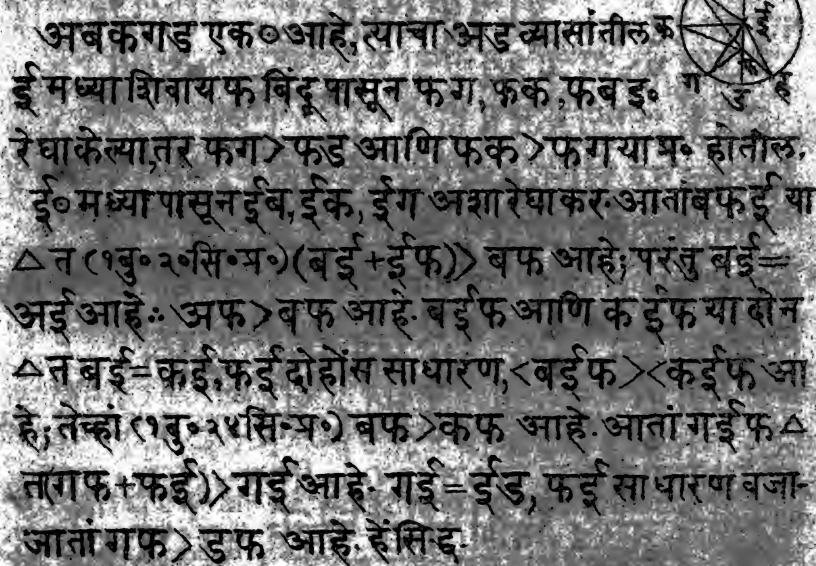 अबकगड एक○आहे, त्याचा अड व्यासांतील क
ई मध्या शिवाय फ बिंदू पासून फ ग, फक, फब इ०
रेघा केल्या, तर फग > फड आणि फक > फग या प्र० होतील.
ई० मध्या पासून ईब, ईक, ईग अशा रेघा कर. आतां ब फ ई या
△ त (१ बु० २० सि० प्र०) (बई + ईफ) > बफ आहे; परंतु बई =
अई आहे ∴ अफ > बफ आहे. बईफ आणि क ईफ या दोन
△ त बई = कई, फई दोहोंस साधारण, < बईफ > < कईफ आ
हे; तेव्हां (१ बु० २४ सि० प्र०) बफ > कफ आहे. आतां गईफ △
त (गफ + फई) > गई आहे. गई = ईड, फई साधारण वजा-
जातां गफ > डफ आहे. हें सिद्ध.
ग ड ह